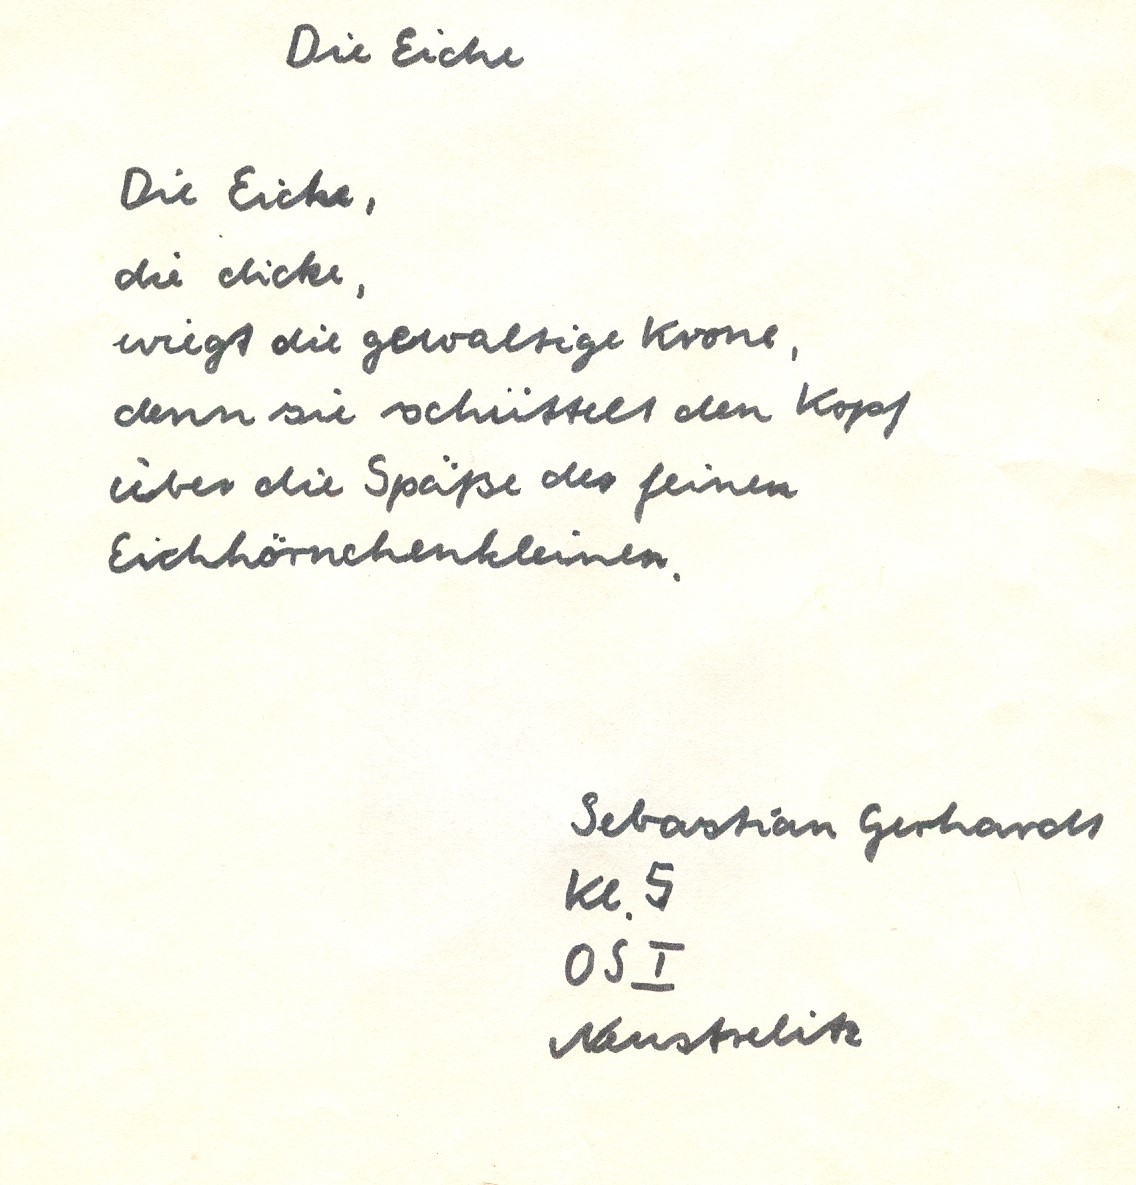 Die Eiche
Die Eiche,
die dicke,
wiegt die gewaltige Krone,
denn sie schüttelt den Kopf
über die Späße der feinen
Eichhörnchenkleinen.
Sebastian Gerhardt
Kl. 5
OS I
Neustrelitz